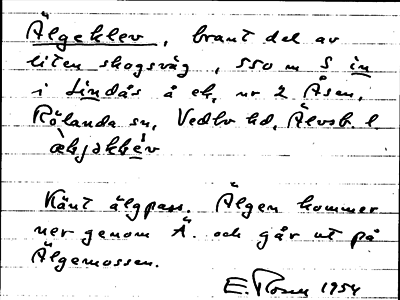 Älgeklev, brant del av
liten skogsväg, 550 m S in
i Lindås å ek. nr 2 Åsen,
Rölanda sn, Vedbo hd, Älvsb. l.
Känt älgpass. Älgen kommer
ner genom Ä. och går ut på
Älgemossen.
E. Rosen 1954